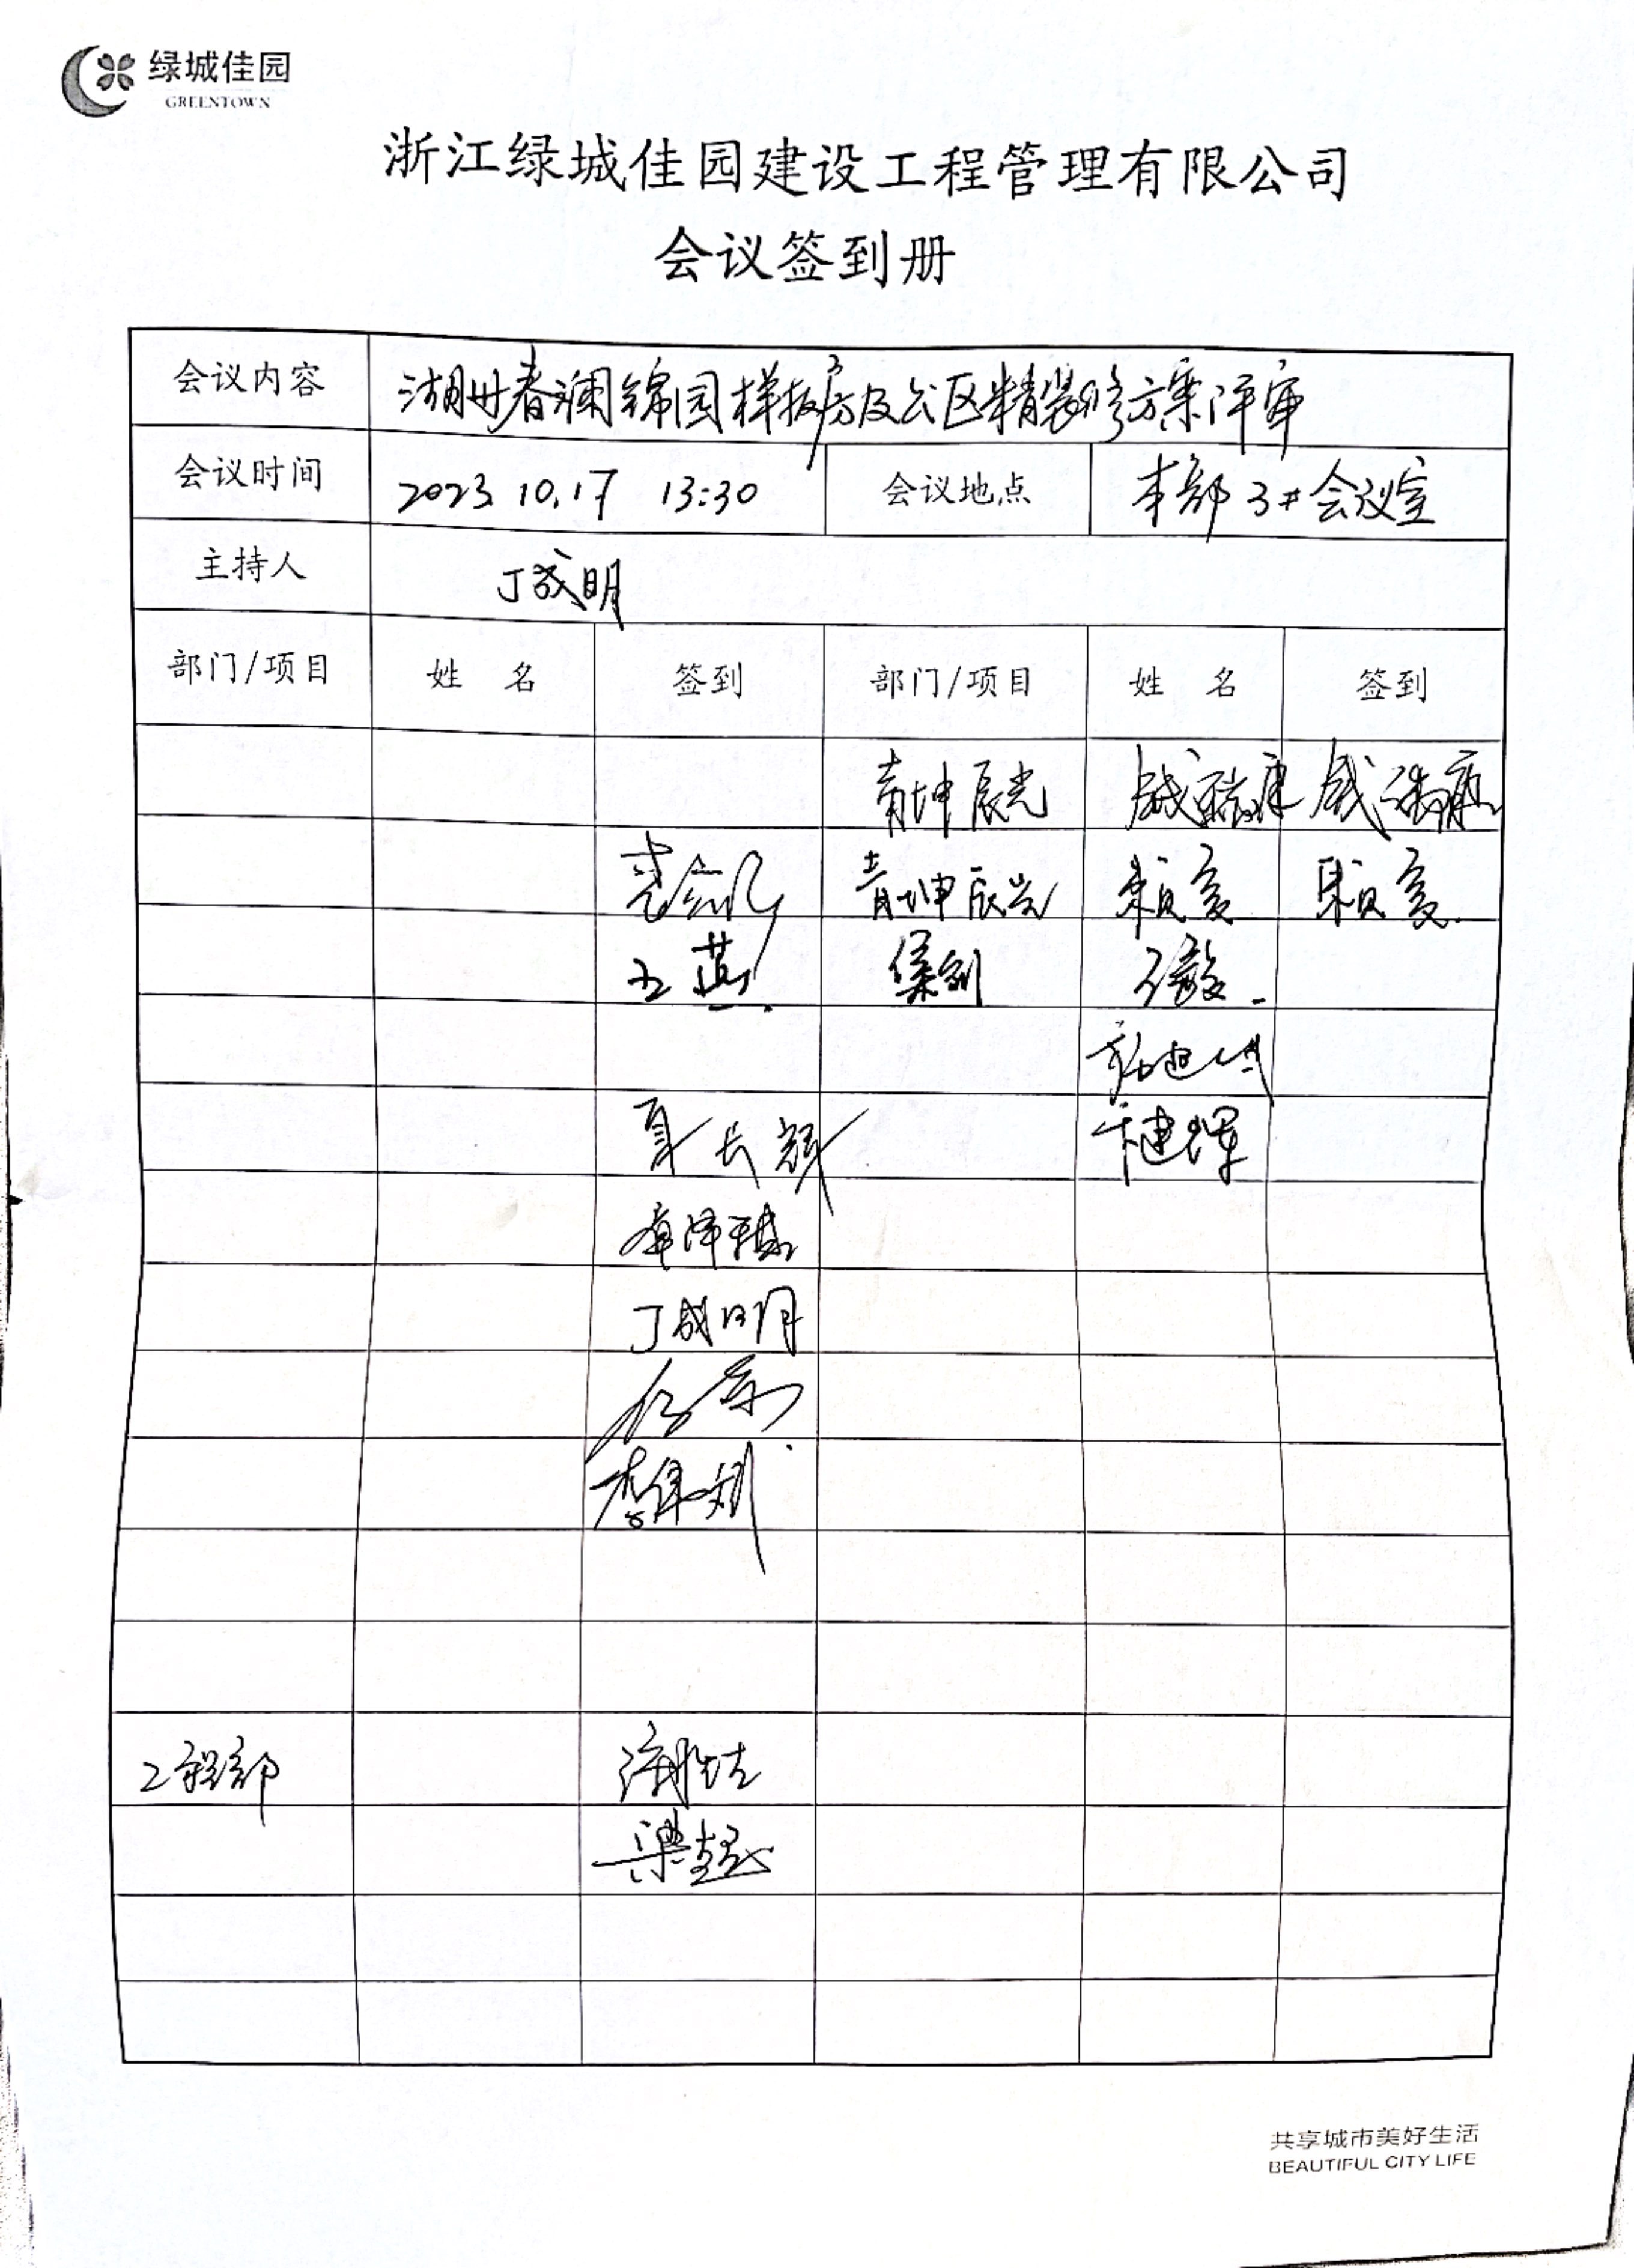 绿城佳园
GREENTOWN
浙江绿城佳园建设工程管理有限公司
会议签到册
会议内容 湖州春澜锦园样板房及公区精装修方案评审
会议时间 2023.10.17 13:30 会议地点 本部3#会议室
主持人 丁成明
部门/项目 姓 名 签到 部门/项目 姓 名 签到
青坤辰光 戚瑞康 戚瑞康
青坤辰光 赖亥 赖亥
王燕 集创
夏长辉 卞建辉
丁成明
李伟刚
工程部
梁
共享城市美好生活
BEAUTIFUL CITY LIFE